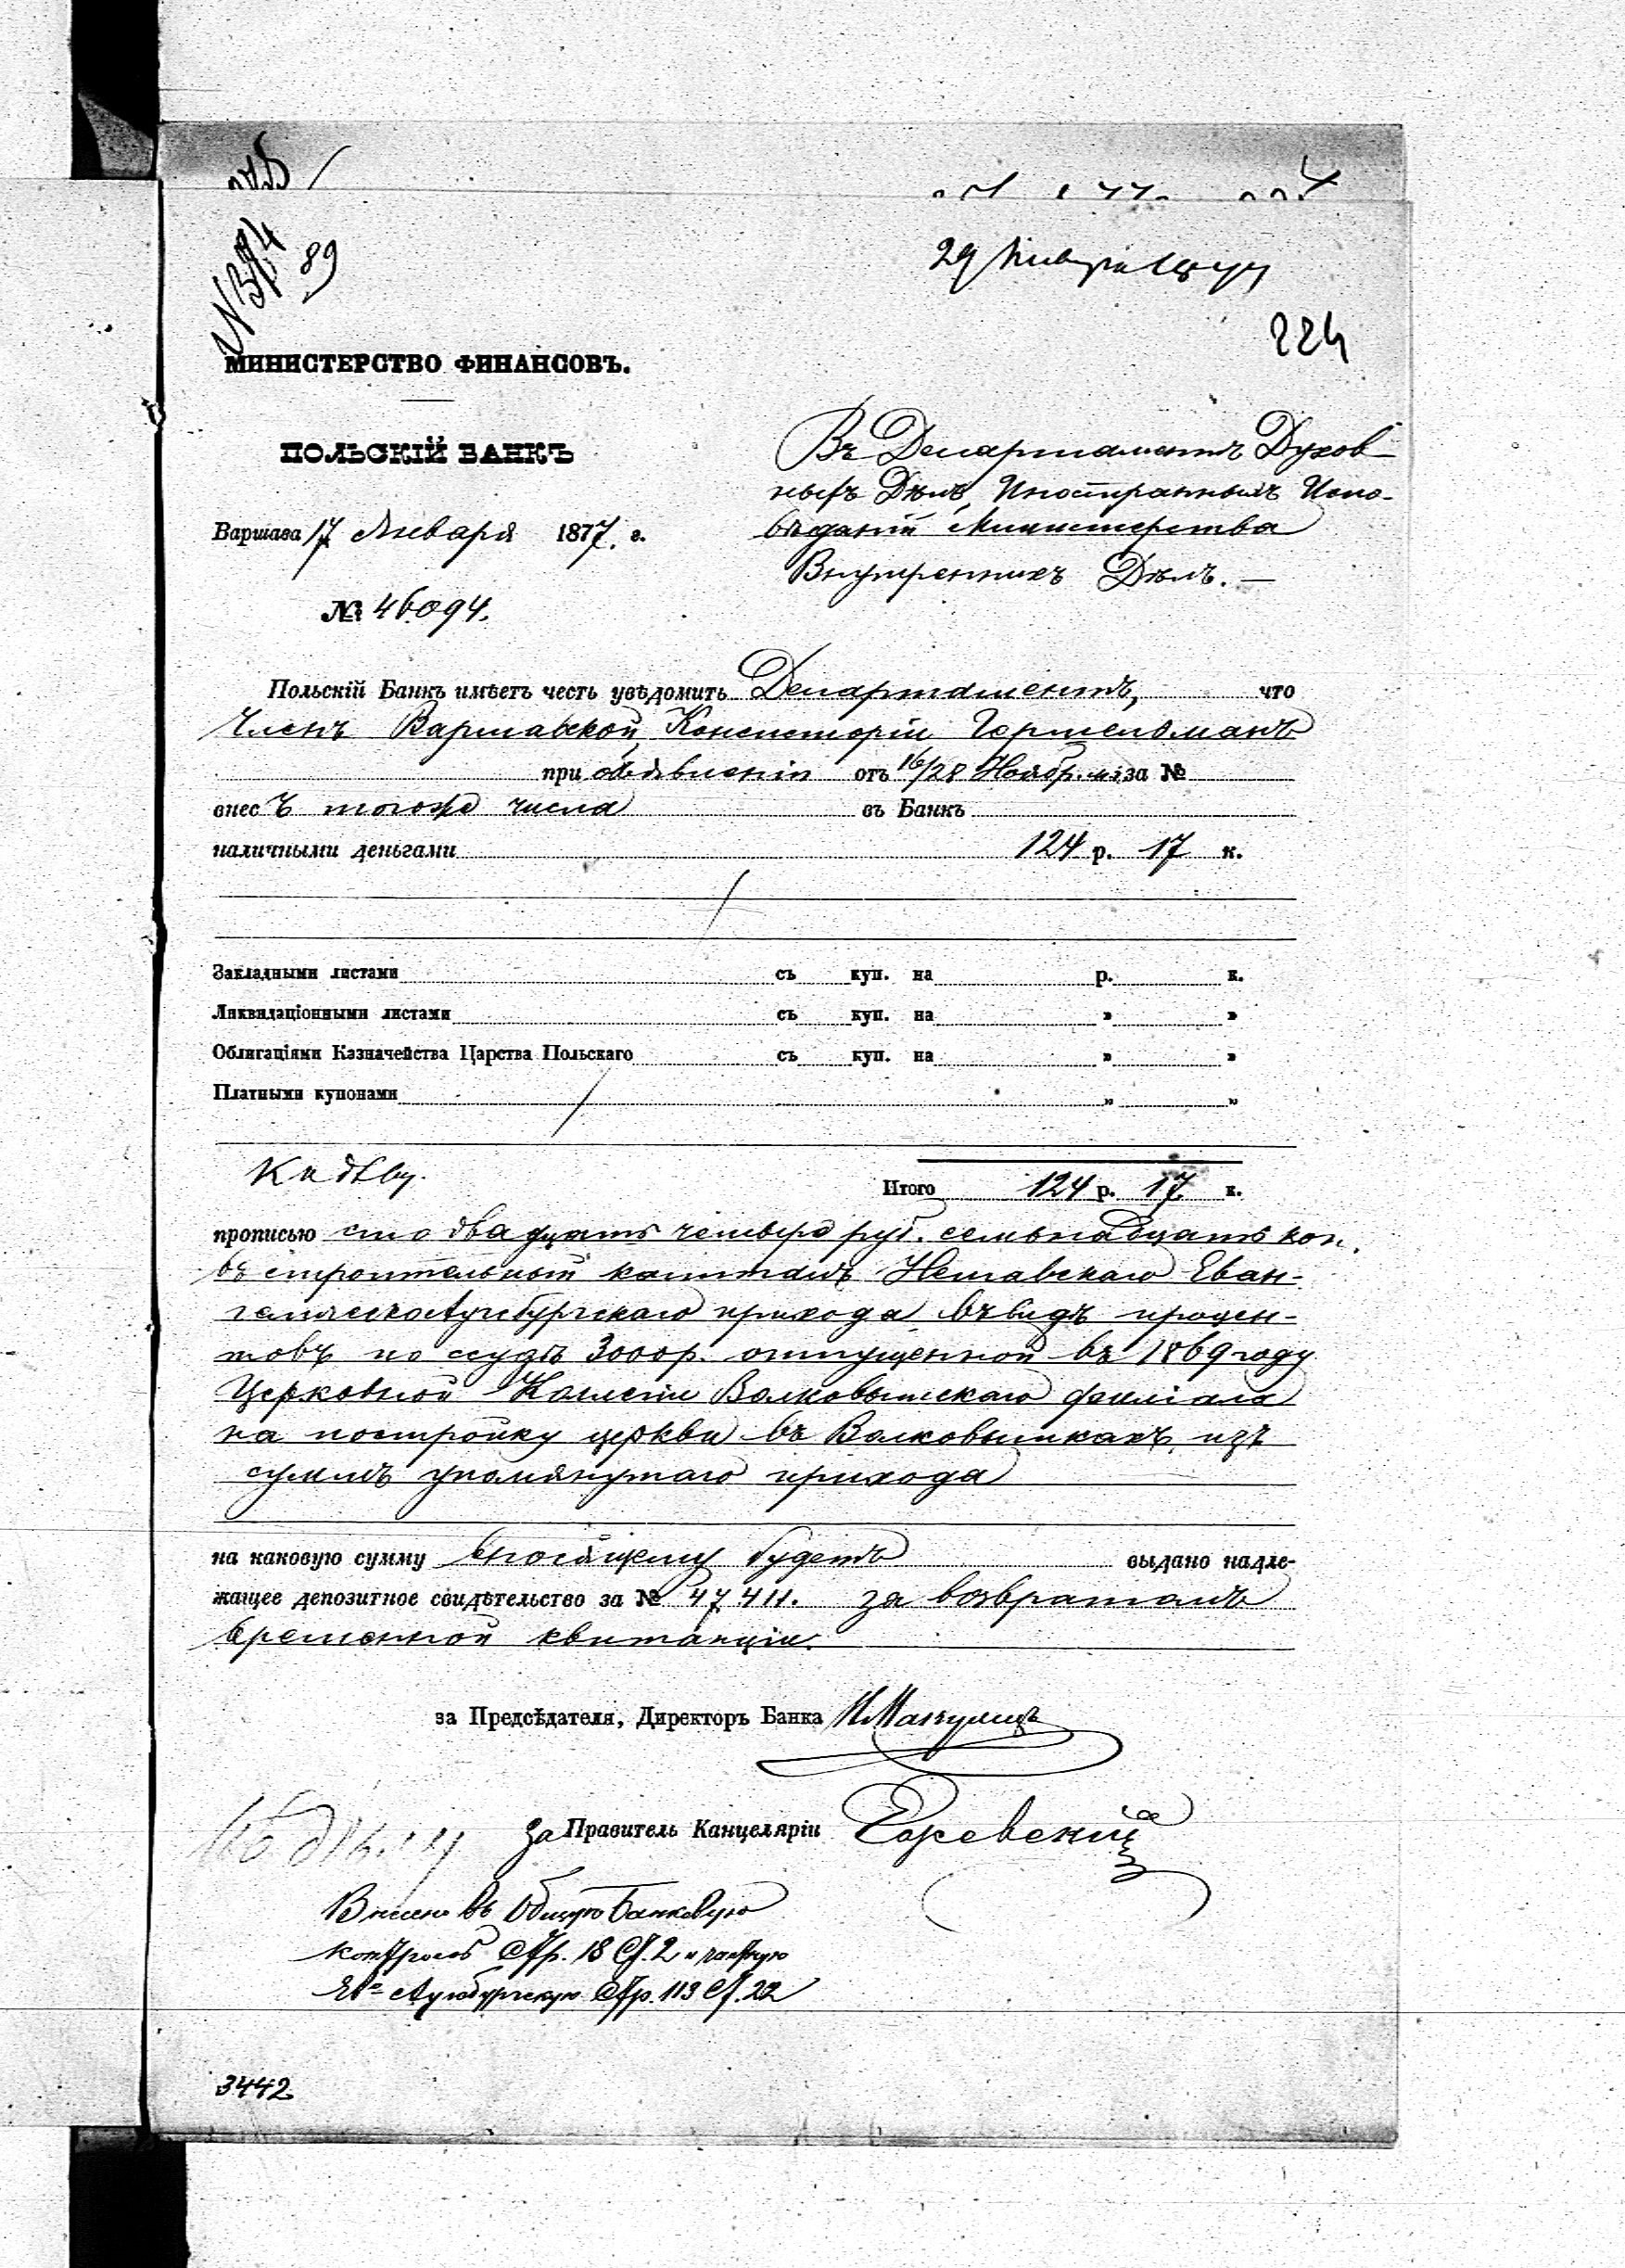 № 394
89
29 Января 1877
224
МИНИСТЕРСТВО ФИНАНСОВЪ.
ПОЛЬСКІЙ БАНКЪ
Варшава 17 Января 1877. г.
№ 46094.
Въ Департаментъ Духов-
ныхъ Дѣлъ Иностранныхъ Испо-
вѣданій Министерства
Внутреннихъ Дѣлъ. —
Польскій Банкъ имѣетъ честь увѣдомить Департаментъ, что
Членъ Варшавской Консисторіи Гершельманъ
при объявленіи отъ 16/28 Ноябр. за №
внесъ тогоже числа въ Банкъ
наличными деньгами 124 р. 17 к.
Закладными листами съ куп. на р. к.
Ликвидаціонными листами съ куп. на » »
Облигаціями Казначейства Царства Польскаго съ куп. на » »
Платными купонами „ „
К дѣлу.
Итого 124 р. 17 к.
прописью сто двадцать четыре руб. семьнадцать коп.
въ строительный капиталъ Нешавскаго Еван-
гелическоАугсбургскаго прихода въ видѣ процен-
товъ по ссудѣ 3000р. отпущенной въ 1869 году
Церковной Колегіи Волковышскаго филіала
на постройку церкви въ Волковышкахъ, изъ
суммъ упомянутаго прихода
на каковую сумму вносящему будетъ выдано надле-
жащее депозитное свидѣтельство за № 47411. за возвратомъ
временной квитанціи.
за Предсѣдателя, Директоръ Банка
за Правитель Канцеляріи
Внесено въ Общую Банковую
контроль Стр. 18 Ст. 2 и частную
Ев= Аугсбургскую Стр. 113 Ст. 22
3442